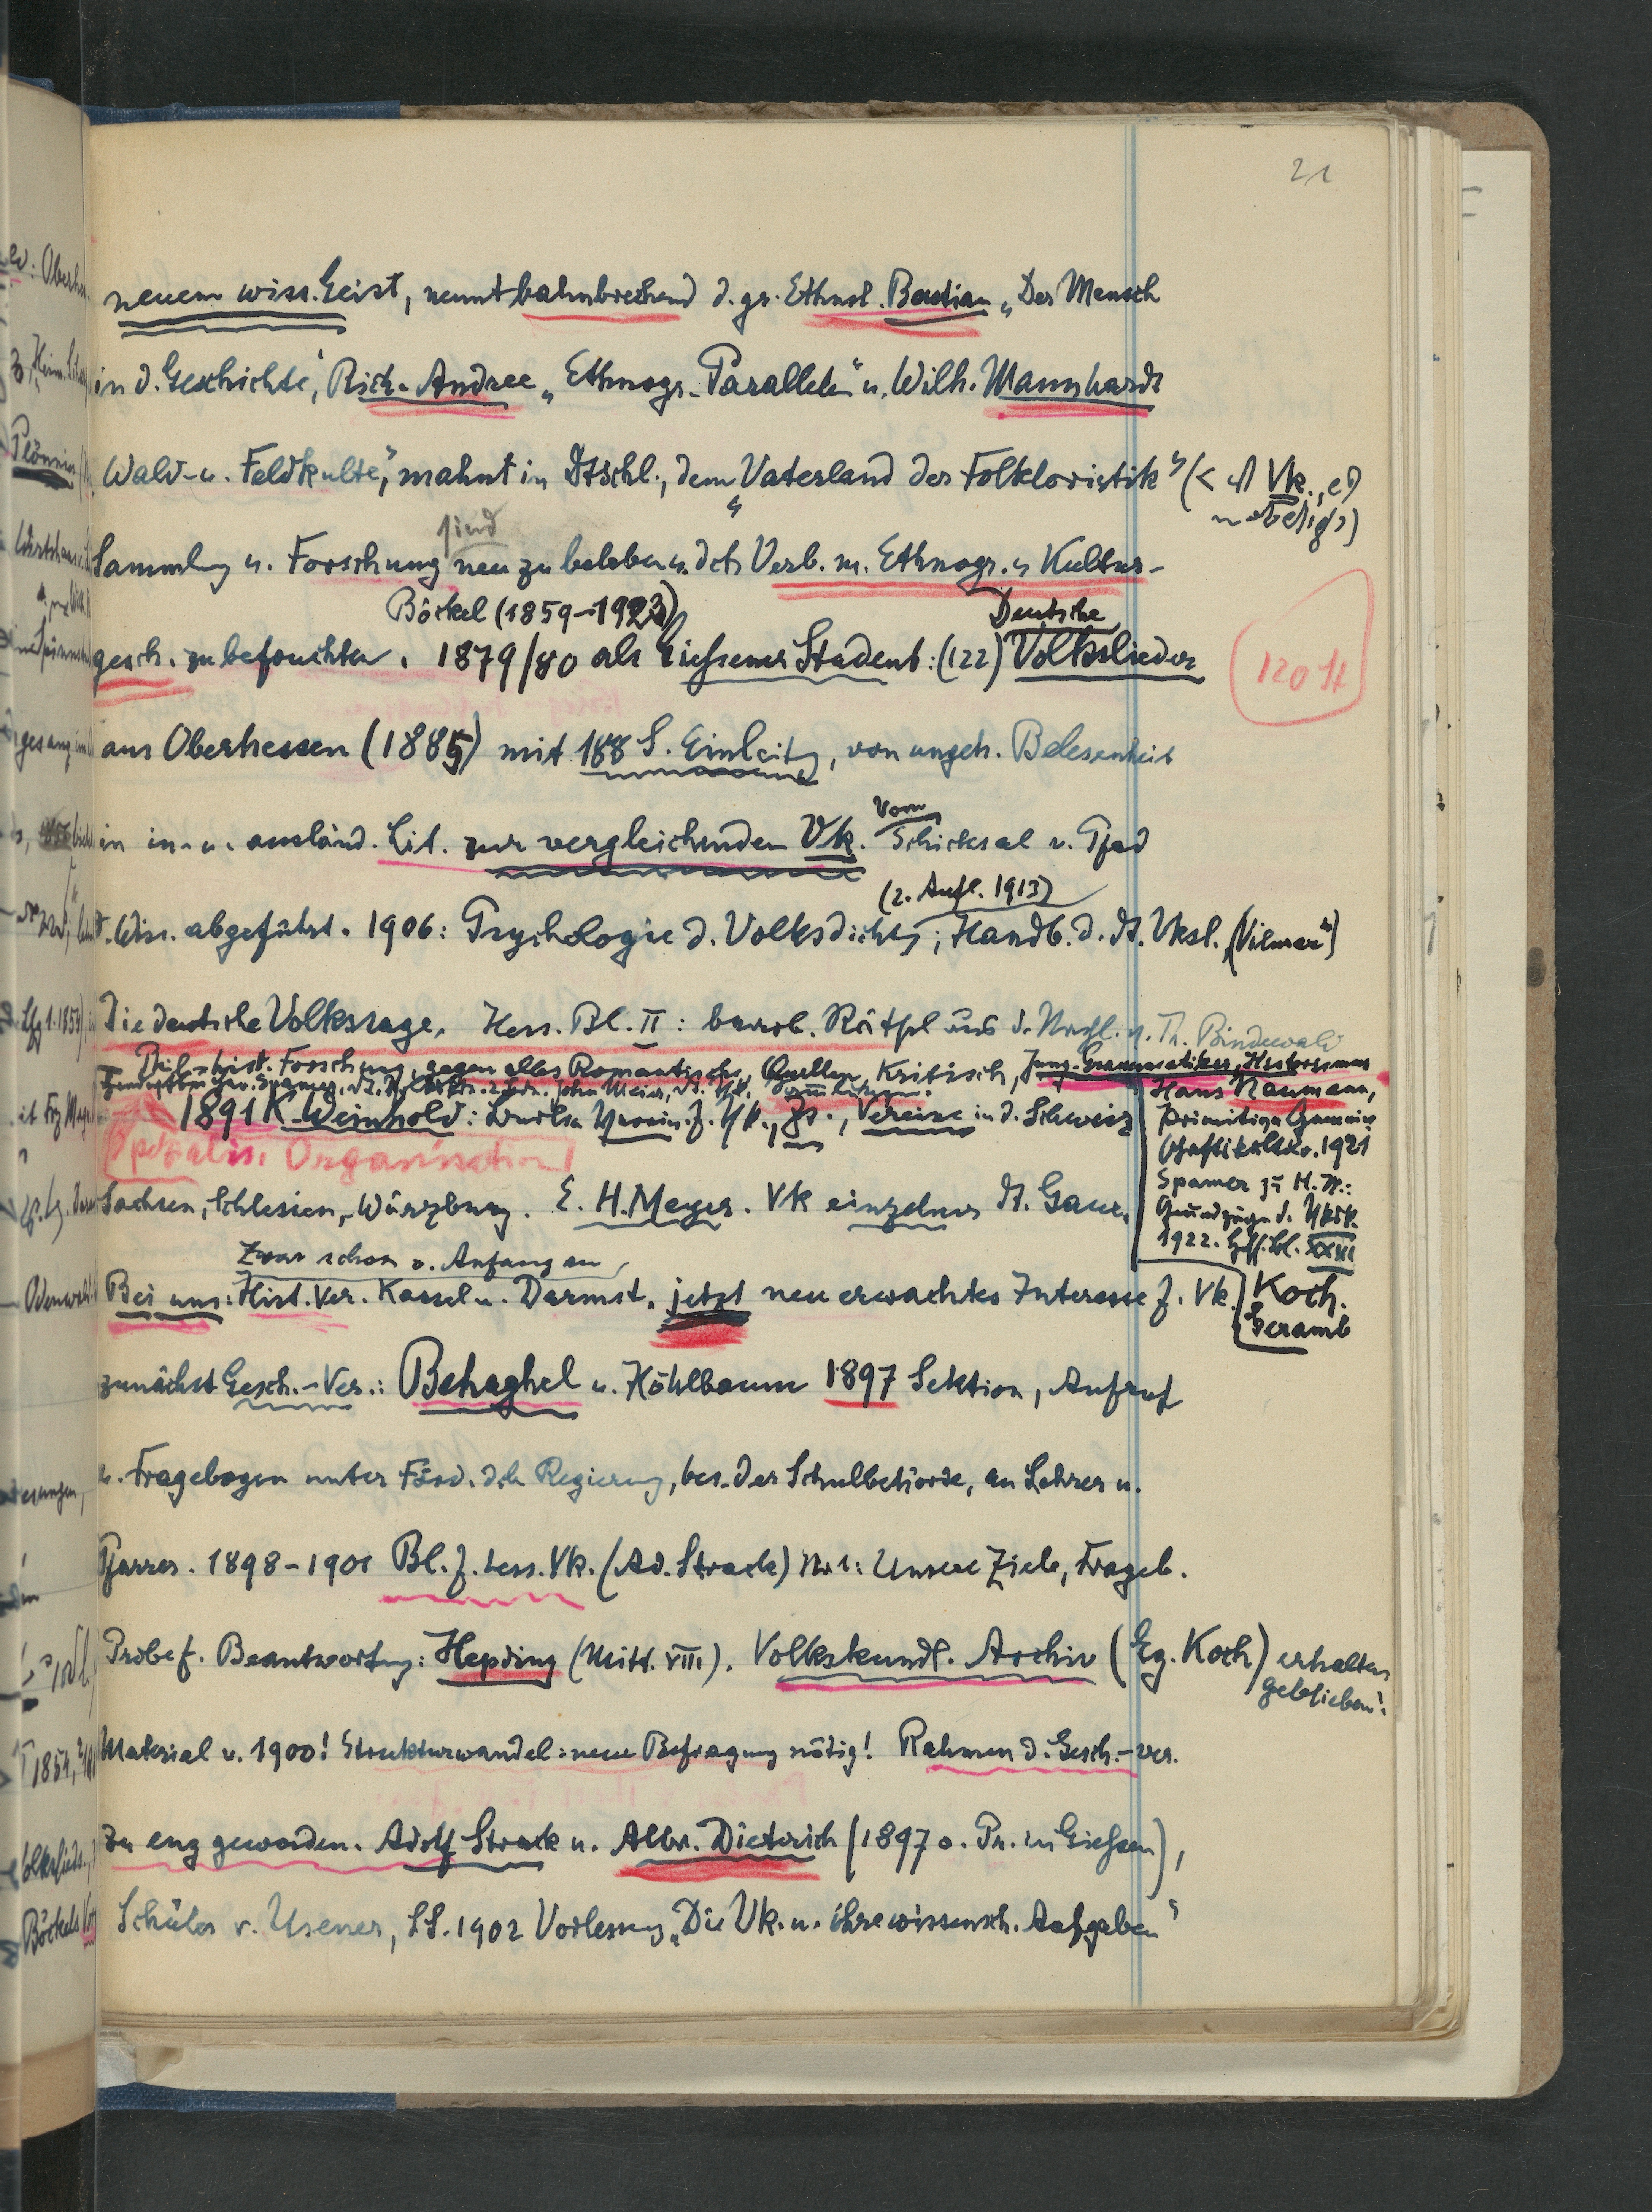 21
neuem wiss. Geist, nennt bahnbrechend d. gr. Ethnol. Bastian „Der Mensch
in d. Geschichte", Rich. Andree „Ethnogr. Parallelen" u. Wilh. Mannhardt
Wald- u. Feldkulte", mahnt in Dtschl., dem „Vaterland der Folkloristik"
sind
Sammlung u. Forschung neu zu beleben u. dch Verb. m. Ethnogr. u Kultur-
Böckel (1859-1923)
Deutsche
gesch. zu befruchten. 1879/80 als Giessener Student: (122) Volkslieder
120 St
aus Oberhessen (1885) mit 188 S. Einleitg, von ungeh. Belesenheit
Vom
in in- u. ausländ. Lit. zur vergleichenden Vk. Schicksal v. Pfad
(2. Aufl. 1913)
d. Wiss. abgeführt. 1906: Psychologie d. Volksdichtg; Handb. d. dt. Vksl. („Vilmar")
Die deutsche Volkssage. Hess. Bl. II: bearb. Rätsel aus d. Nachl. v. Th. Bindewald
Phil.-hist. Forschung, gegen alles Romantische, Quellen, Kritisch, Jung-Grammatiker, Historismus
John Meier, dt. Vk.
1891 K. Weinhold: Berlin Verein f. Vk., Zs., Vereine in d. Schweiz
Hans Naumann,
Primitive Gemein-
schaftskultur. 1921
Spamer zu H. N.:
Grundzüge d. Vksk.
1922. Hess. Bl. XXIII
Spezialis. Organisation
Sachsen, Schlesien, Würzburg. E. H. Meyer. Vk einzelner dt. Gaue.
Zwar schon v. Anfang an
Bei uns: Hist. Ver. Kassel u. Darmst. jetzt neu erwachtes Interesse f. Vk.
Koch.
Geramb
zunächst Gesch.-Ver.: Behaghel u. Höhlbaum 1897 Sektion, Aufruf
u. Fragebogen unter Förd. dch Regierung, bes. der Schulbehörde, an Lehrer u.
Pfarrer. 1898-1901 Bl. f. hess. Vk. (Ad. Strack) Nr 1: Unsere Ziele, Frageb.
Probe f. Beantwortung: Hepding (Mitt. VIII). Volkskundl. Archiv (Eg. Koch) erhalten
geblieben!
Material v. 1900! Strukturwandel: neue Befragung nötig! Rahmen d. Gesch.-ver.
zu eng geworden. Adolf Strack u. Albr. Dieterich (1897 o. Pr. in Giessen),
Schüler v. Usener, SS. 1902 Vorlesung „Die Vk. u. ihre wissensch. Aufgaben"